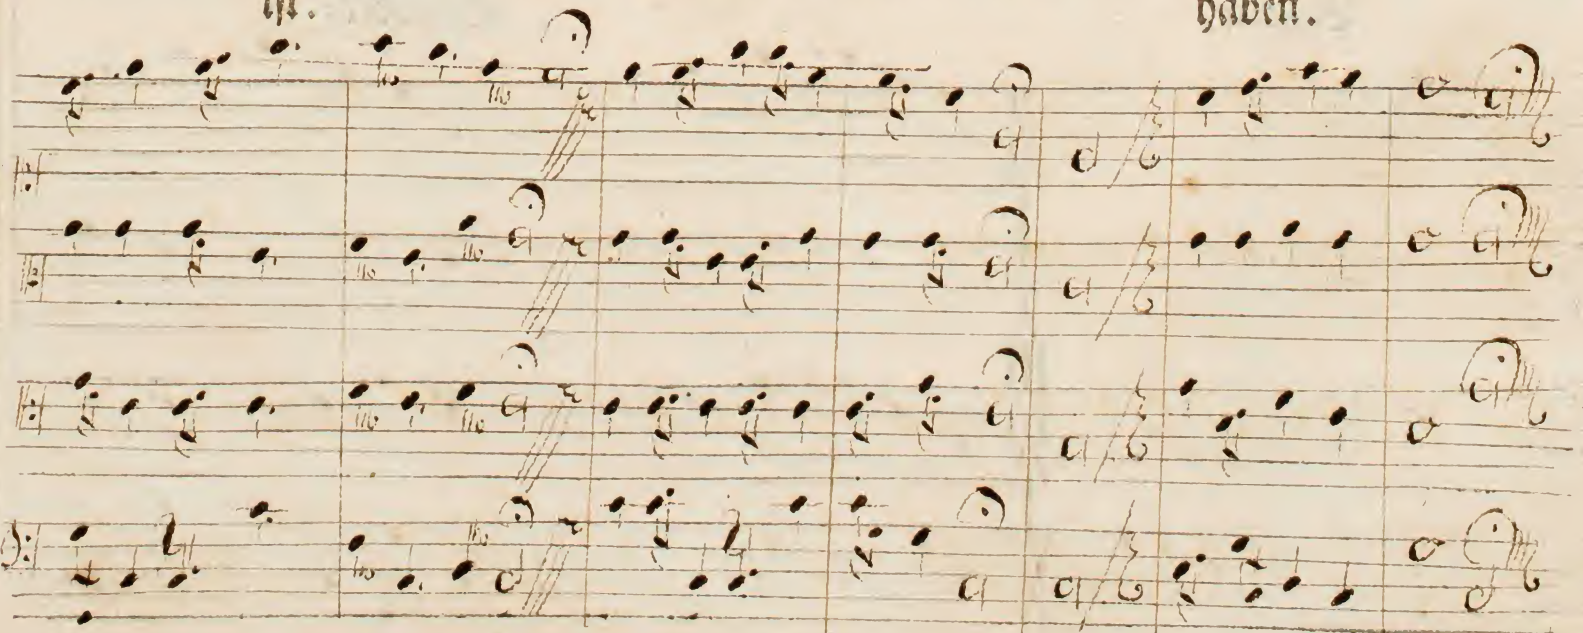 ist.
haben.